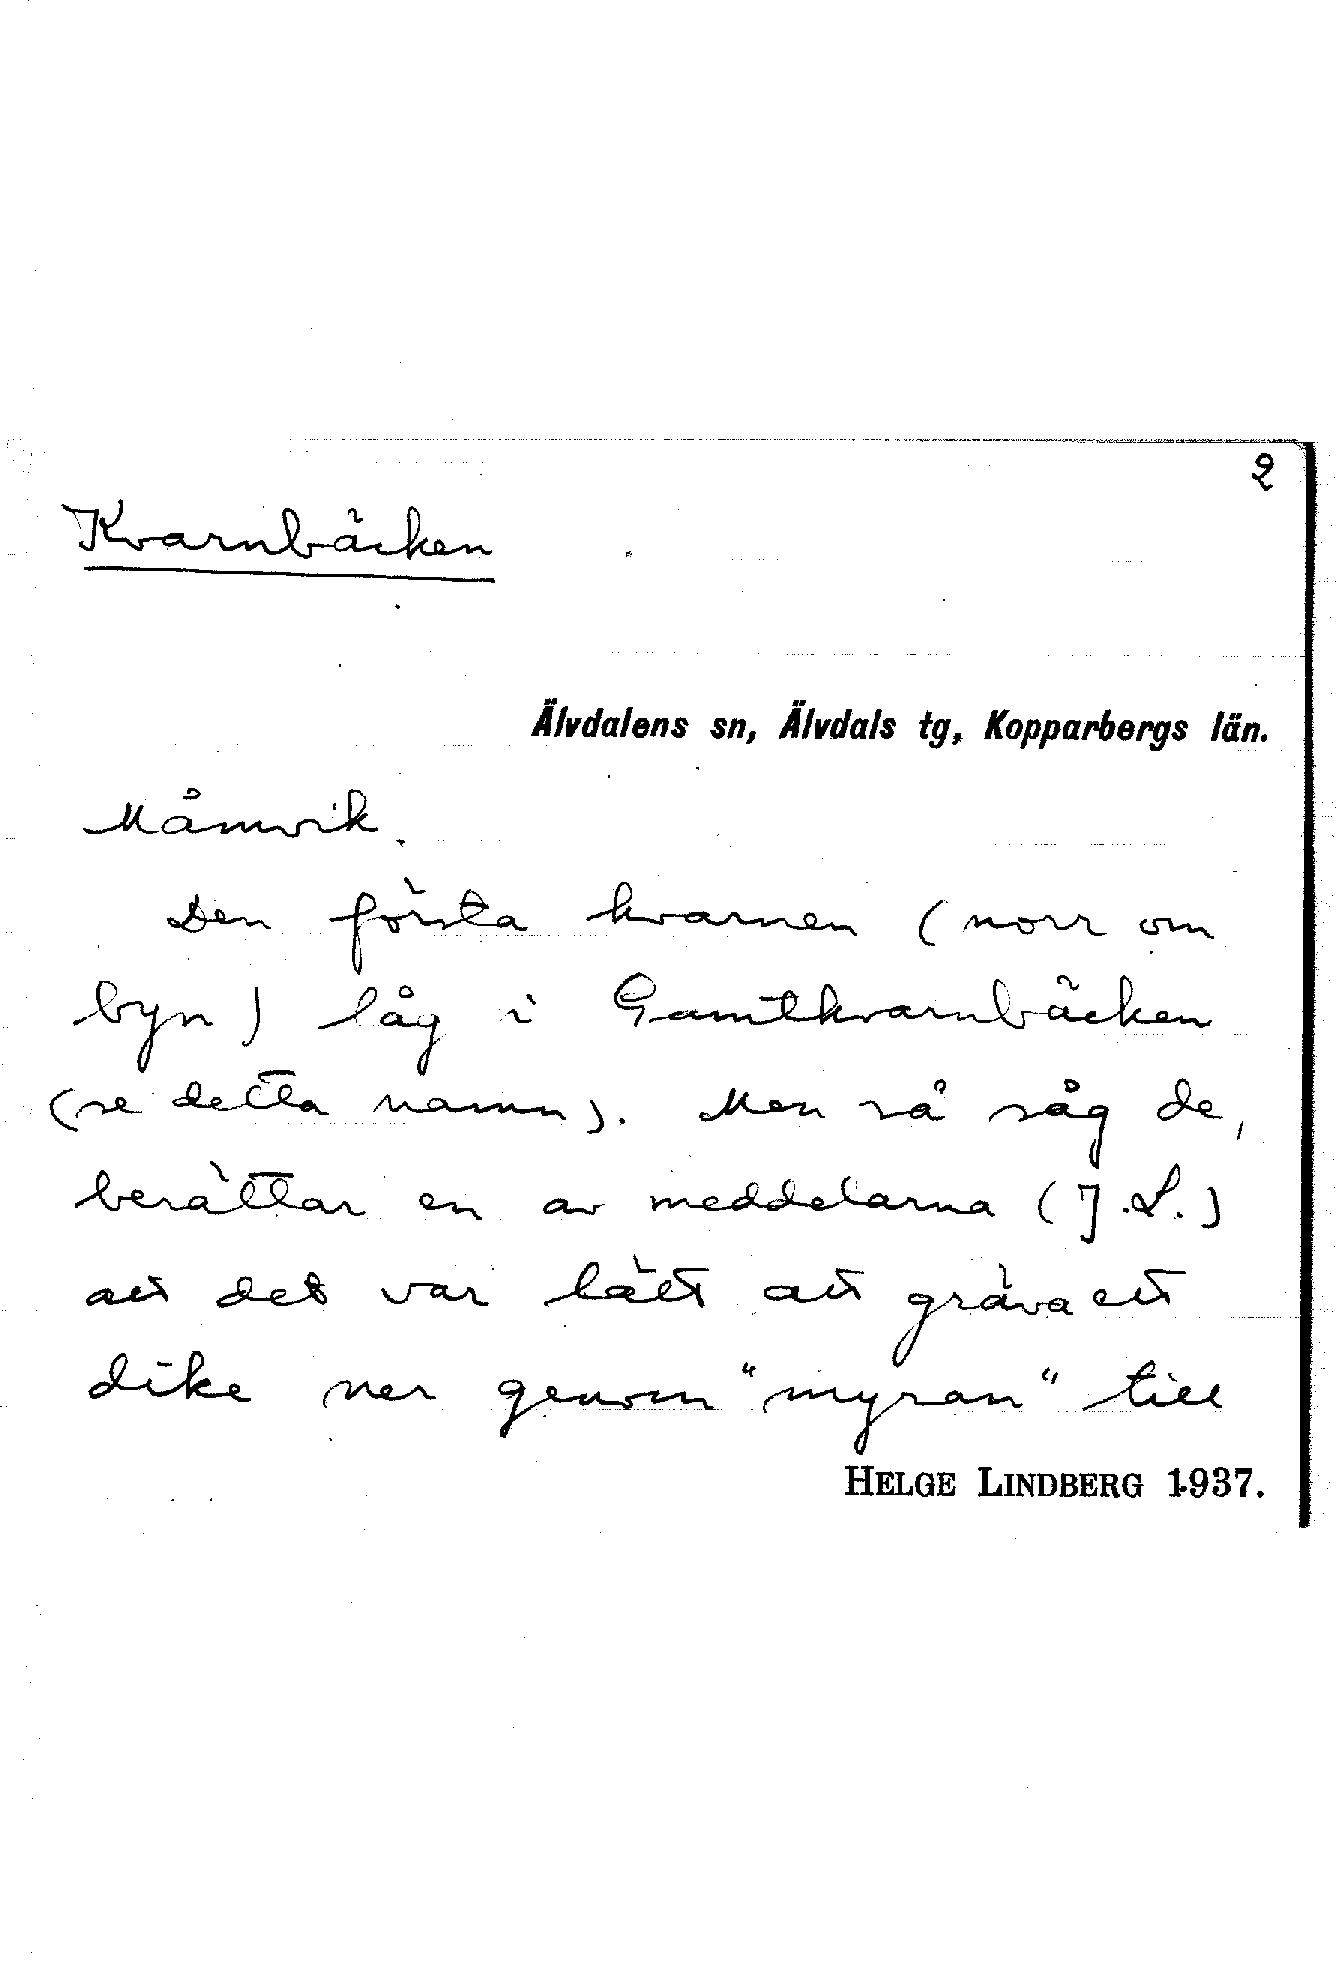 2
Kvarnbäcken
Älvdalens sn, Älvdals tg, Kopparbergs län.
Måmvik.
Den första kvarnen (norr om
byn) låg i Gamtkvarnbäcken
(se detta namn). Men så såg de,
berättar en av meddelarna (J.L.)
att det var lätt att gräva ett
dike ner genom "myran" till
HELGE LINDBERG 1937.